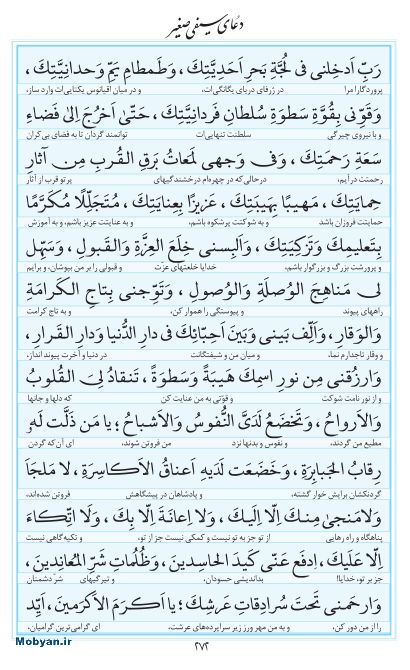 دعای سیفی صغیر
رَبِّ اَدخِلنی فی لُجَّةِ بَحرِ اَحَدِیَّتِكَ، وَطَمطامِ یَمِّ وَحدانِیَّتِكَ،
پروردگارا مرا در ژرفای دریای یگانگی‌ات، و در میان اقیانوس یکتایی‌ات وارد ساز،
وَقَوِّنی بِقُوَّةِ سَطوَةِ سُلطانِ فَردانِیَّتِكَ، حَتّىٰ اَخرُجَ اِلىٰ فَضاءِ
و با نیروی چیرگی سلطنت تنهایی‌ات توانمند گردان تا به فضای بی‌کران
سَعَةِ رَحمَتِكَ، وَفی وَجهی لَمَعاتُ بَرقِ القُربِ مِن آثارِ
رحمتت درآیم، درحالی‌که در چهره‌ام درخشندگیهای پرتو قرب از آثار
حِمایَتِكَ، مَهیبًا بِهَیبَتِكَ، عَزیزًا بِعِنایَتِكَ، مُتَجَلِّلًا مُكَرَّمًا
حمایتت فروزان باشد و به شوکتت پرشکوه باشم، و به عنایتت عزیز باشم، و به آموزش
بِتَعلیمِكَ وَتَزكِیَتِكَ، وَاَلبِسنی خِلَعَ العِزَّةِ وَالقَبولِ، وَسَهِّل
و پرورشت بزرگ و بزرگوار باشم، خدایا خلعتهای عزّت و قبولی را بر من بپوشان، و برایم
لی مَناهِجَ الوُصلَةِ وَالوُصولِ، وَتَوِّجنی بِتاجِ الكَرامَةِ
راههای پیوند و پیوستگی را هموار کن، و به تاج کرامت
وَالوَقارِ، وَاَلِّف بَینی وَبَینَ اَحِبّائِكَ فی دارِ الدُّنیا وَدارِ القَرارِ،
و وقار تاجدارم نما، و میان من و شیفتگانت در دنیا و آخرت پیوند انداز،
وَارزُقنی مِن نورِ اسمِكَ هَیبَةً وَسَطوَةً، تَنقادُ لِیَ القُلوبُ
و از نور نامت شوکت و قوّتی به من عنایت کن که دلها و جانها
وَالاَرواحُ، وَتَخضَعُ لَدَیَّ النُّفوسُ وَالاَشباحُ؛ یا مَن ذَلَّت لَهُ
مطیع من گردند، و نفوس و بدنها نزد من فروتن شوند، ای آن‌که گردن
رِقابُ الجَبابِرَةِ، وَخَضَعَت لَدَیهِ اَعناقُ الاَكاسِرَةِ، لا مَلجَاَ
گردنکشان برایش خوار گشته، و پادشاهان در پیشگاهش فروتن شده‌اند،
وَلامَنجىٰ مِنكَ اِلّا اِلَیكَ، وَلا اِعانَةَ اِلّا بِكَ، وَلَا اتِّكاءَ
پناهگاه و راه رهایی از تو جز به تو نیست و کمکی نیست جز از تو، و تکیه‌گاهی نیست
اِلّا عَلَیكَ، اِدفَع عَنّی كَیدَ الحاسِدینَ، وَظُلُماتِ شَرِّ المُعانِدینَ،
جز بر تو، خدایا! بداندیشی حسودان، و تیرگیهای شرّ دشمنان
وَارحَمنی تَحتَ سُرادِقاتِ عَرشِكَ؛ یا اَكرَمَ الاَكرَمینَ، اَیِّد
را از من دور کن، و به من مهر ورز زیر سراپرده‌های عرشت، ای گرامی‌ترین گرامیان،
۲۷۲
Mobyan.ir